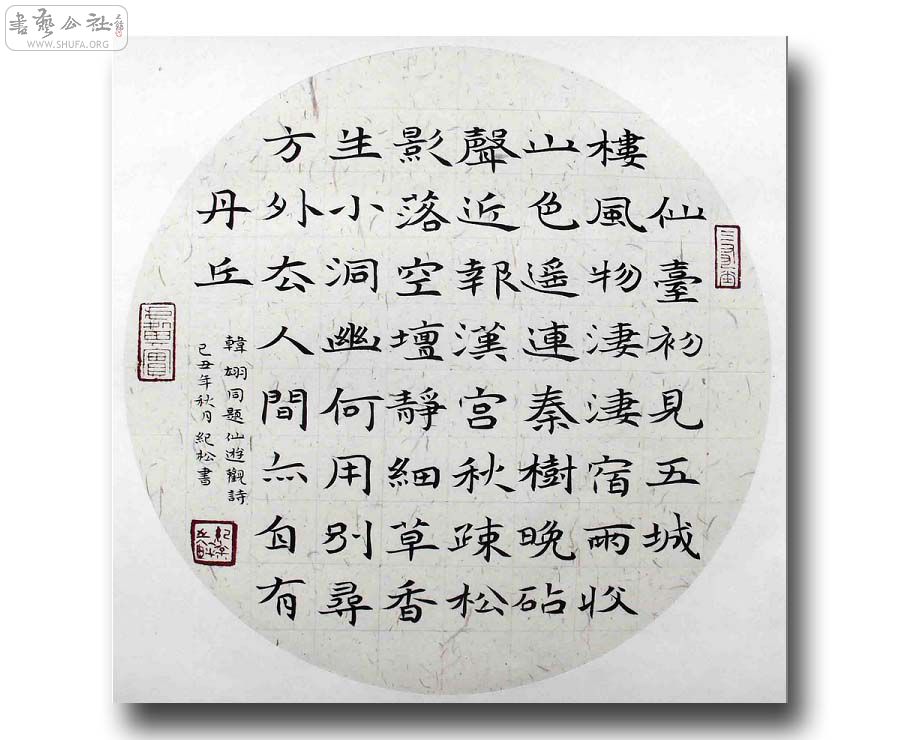 書藝公社
WWW.SHUFA.ORG
仙臺初見五城
樓風物淒淒宿雨收
山色遥連秦樹晚砧
聲近報漢宮秋疎松
影落空壇靜細草香
生小洞幽何用別尋
方外去人間亦自有
丹丘
韓翃同題仙遊觀詩
己丑年秋月紀松書